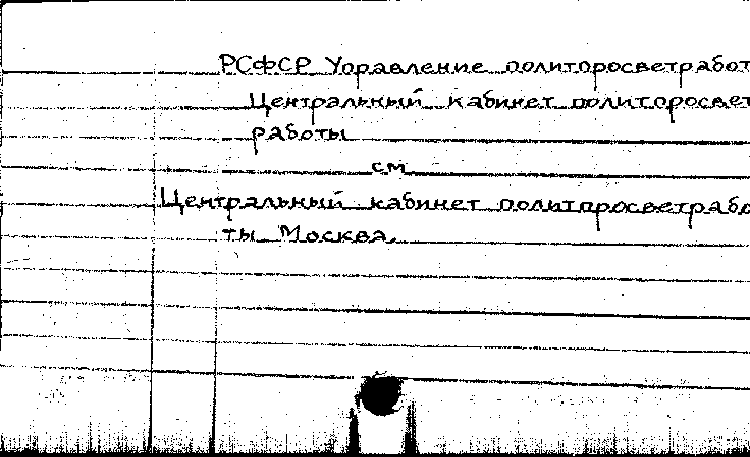 РСФСР Управление политпросветработ
Центральный кабинет политпросвет
работы
см
Центральный кабинет политпросветрабо
ты Москва.